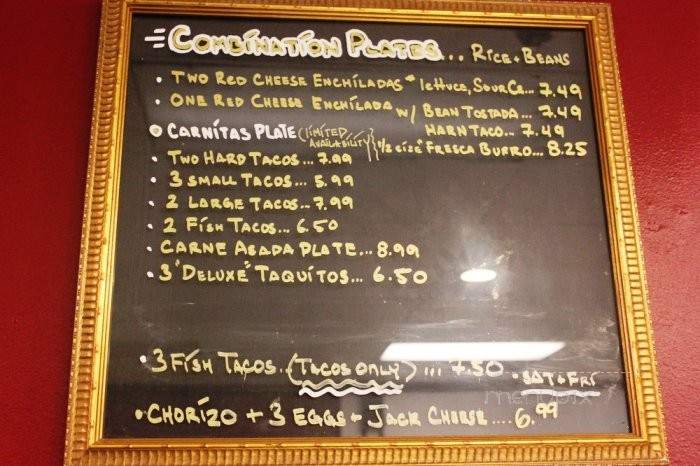 COMBINATION PLATES... RICE + BEANS
• TWO RED CHEESE ENCHILADAS * lettuce, SOUR CR... 7.49
• ONE RED CHEESE ENCHILADA w/ BEAN TOSTADA... 7.49
HARN TACO... 7.49
• CARNITAS PLATE (LIMITED AVAILABILITY) 1/2 size FRESCA BURRO... 8.25
• TWO HARD TACOS... 7.99
• 3 SMALL TACOS... 5.99
• 2 LARGE TACOS... 7.99
• 2 FISH TACOS... 6.50
• CARNE ASADA PLATE... 8.99
• 3 "DELUXE" TAQUITOS... 6.50
• 3 FISH TACOS.. (TACOS ONLY) ... 7.50 • SAT & FRI
• CHORIZO + 3 EGGS + JACK CHEESE .... 6.99
menupix